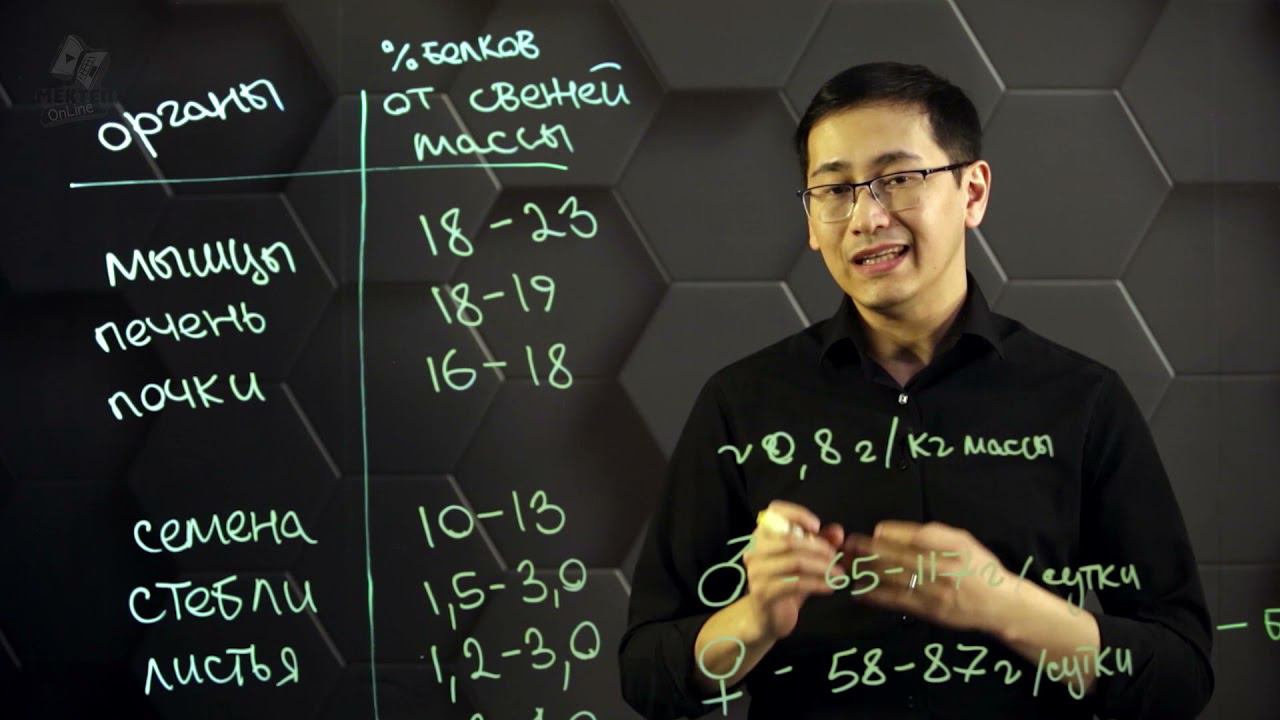 МЕКТЕП
OnLine
органы
% белков
от свежей
массы
мышцы 18-23
печень 18-19
почки 16-18
семена 10-13
стебли 1,5-3,0
листья 1,2-3,0
~0,8 г/кг массы
♂ - 65-117 г/сутки
♀ - 58-87 г/сутки